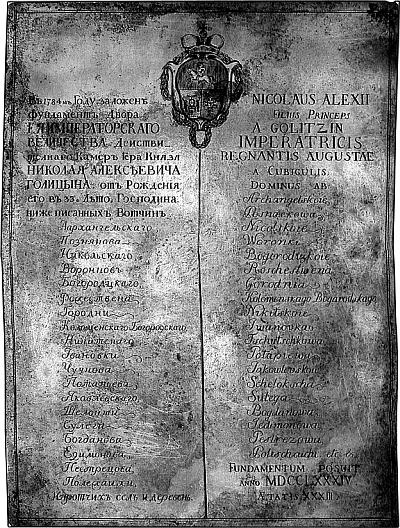 Въ 1784мъ Году заложенъ
фундаментъ Двора
ЕЯ ИМПЕРАТОРСКАГО
ВЕЛИЧЕСТВА Действи
тельнаго Камеръ Гера Князя
НИКОЛАЯ АЛЕКСѢЕВИЧА
ГОЛИЦЫНА: отъ Рожденiя
его въ 33. Лѣто, Господина
ниже писанныхъ Вотчинъ
Архангельскаго
Познякова
Никольскаго
Воронковъ
Богородцкаго
Рожествена
Городни
Коломенскаго Богородскаго
Никитскаго
Ивановки
Чучкова
Потапцева
Яковлевскаго
Шелкоти
Сулега
Богданова
Едимонова
Пестрецова
Полежайки
И протчихъ селъ и деревень.
NICOLAUS ALEXII
Filius Princeps
A GOLITZIN
IMPERATRICIS
REGNANTIS AUGUSTAE
A Cubiculis
Dominus ab
Archangelskoie
Posniackowa
Nicolskoie
Woronki
Bogorodizkoie
Roschestwena
Gorodnia
Kolomenskago Bogorodskago
Nikitskoie
Iwanowka
Potapzewa
Jakowlewskoie
Sulega
Bogdanowa
Jedimonowa
etc.
Fundamentum Posuit
Anno MDCCLXXXIV
Ætatis XXXIII